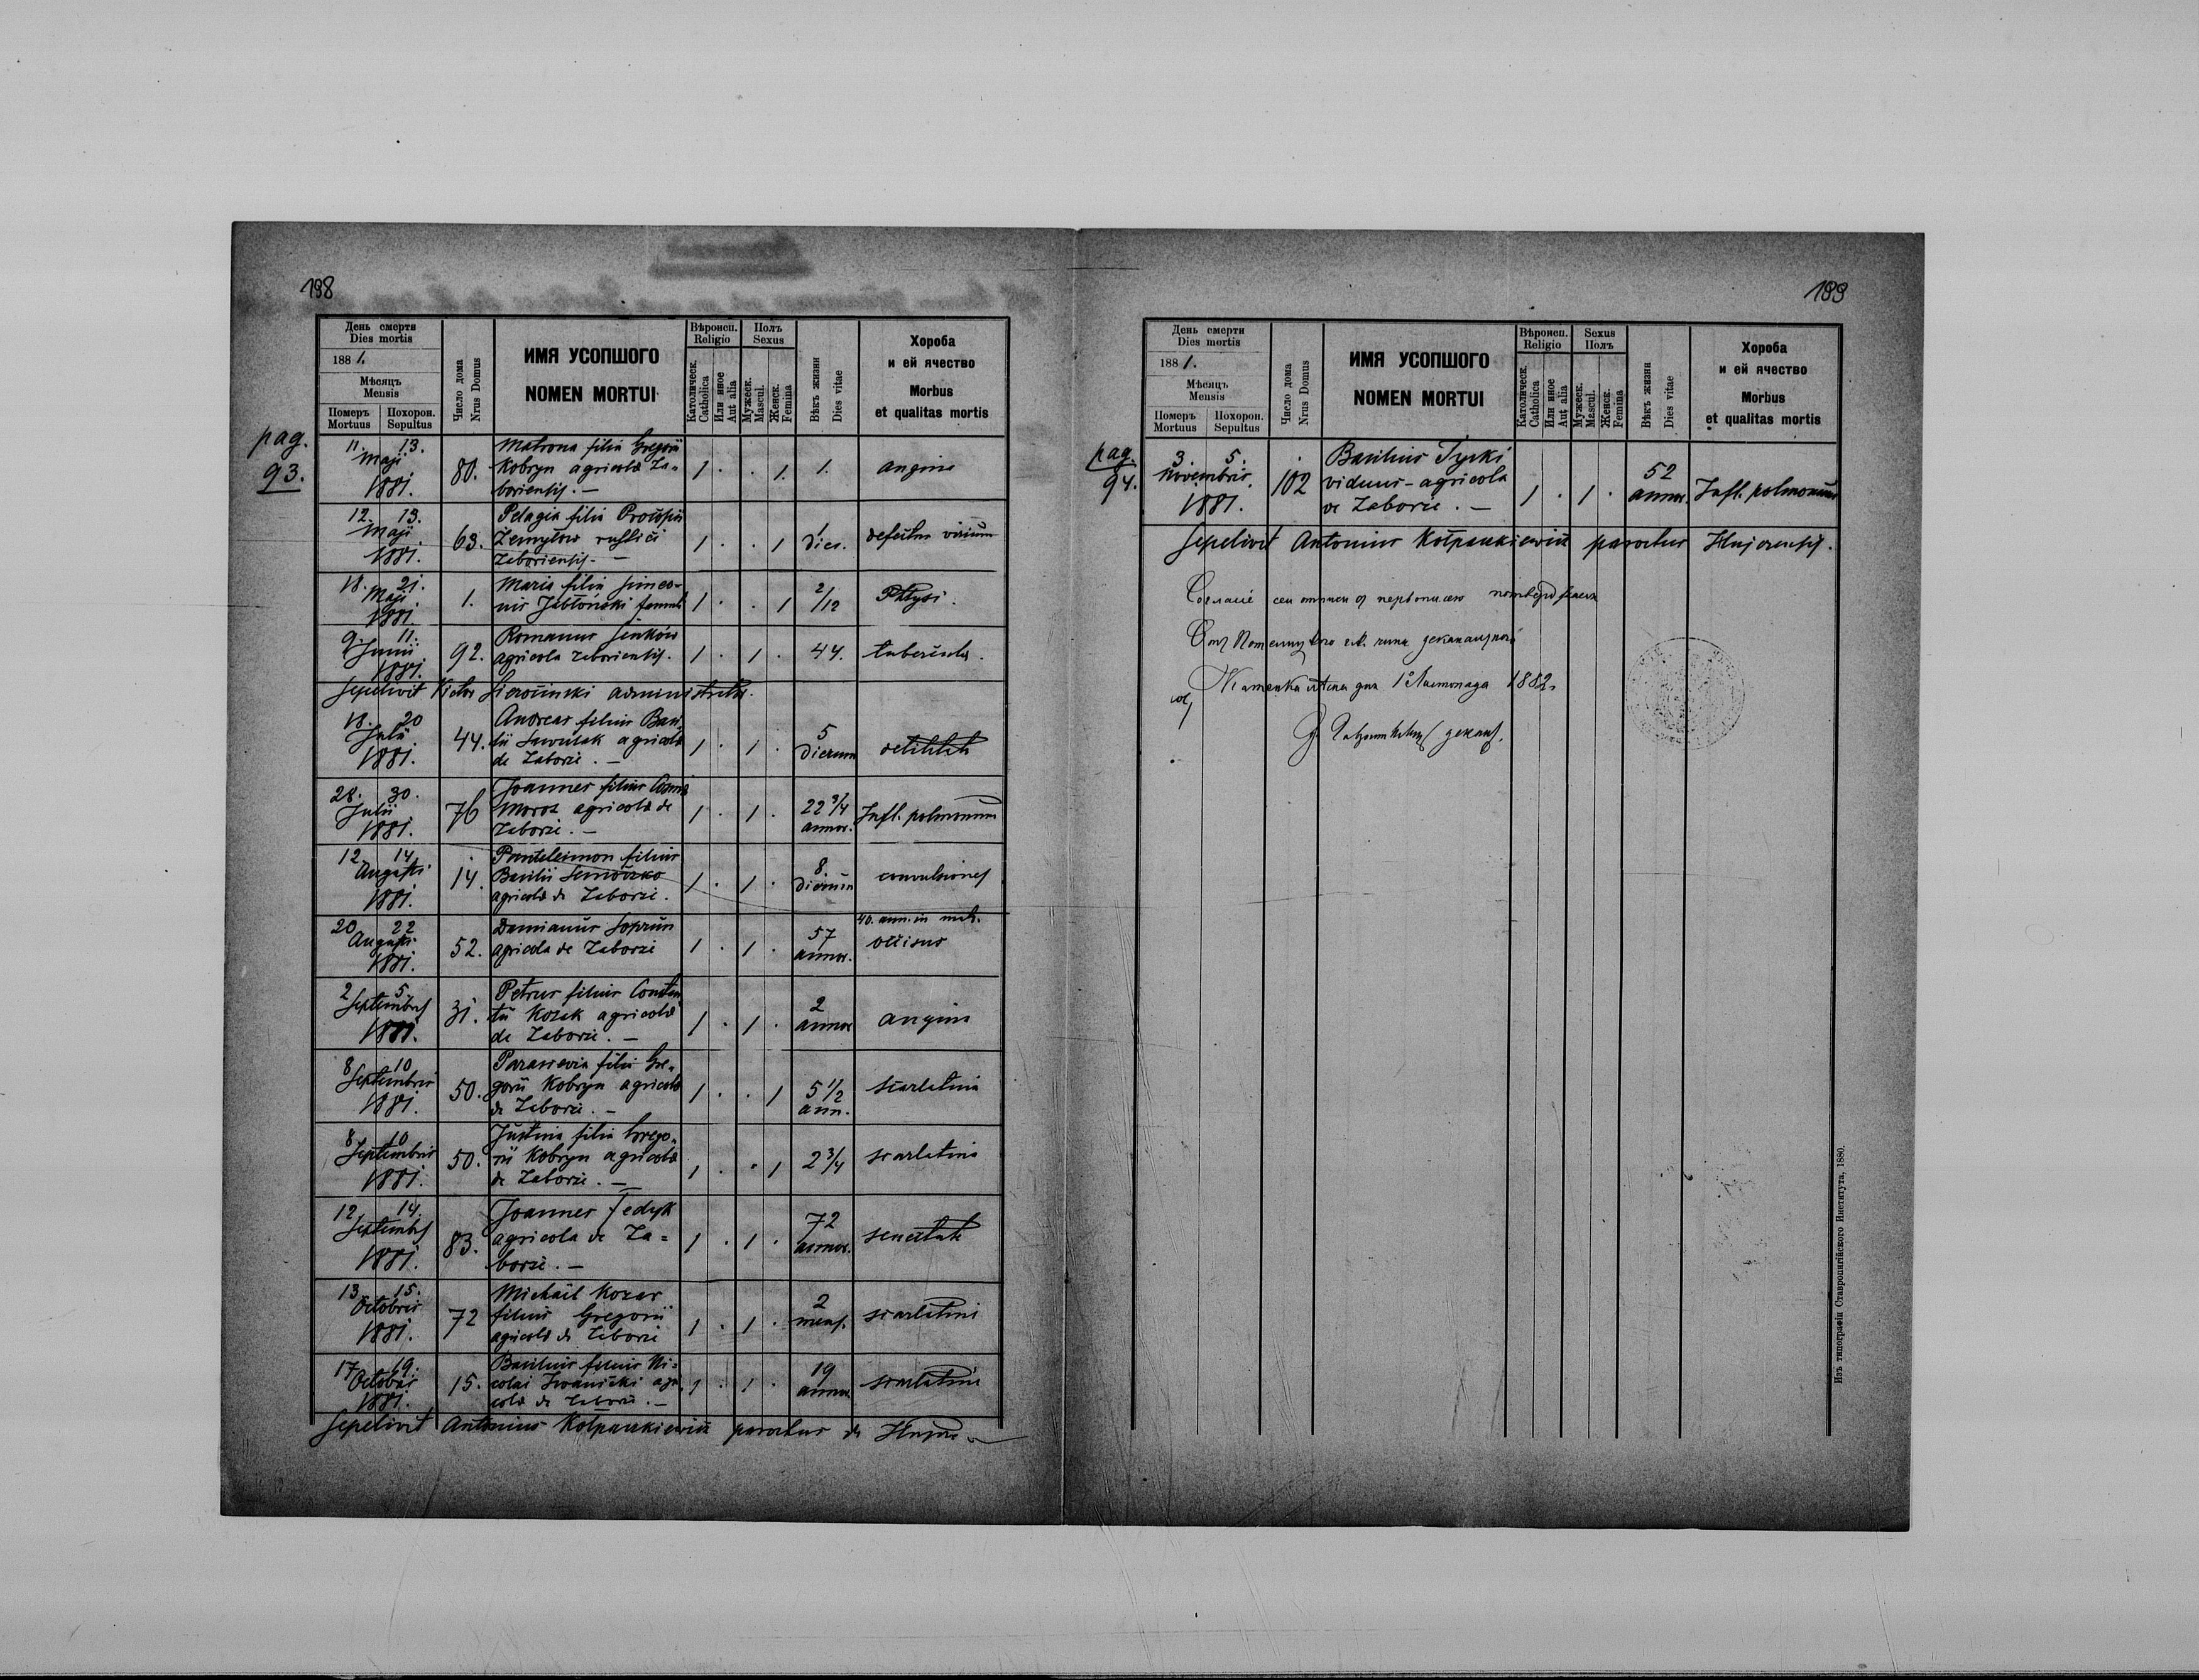 198
День смерти
Dies mortis
1881.
Мѣсяцъ
Mensis
Померъ
Mortuus
Похорон.
Sepultus
Число дома
Nrus Domus
ИМЯ УСОПШОГО
NOMEN MORTUI
Вѣроисп.
Religio
Католическ.
Catholica
Или иное
Aut alia
Полъ
Sexus
Мужеск.
Mascul.
Женск.
Femina
Вѣкъ жизни
Dies vitae
Хороба
и ей ячество
Morbus
et qualitas mortis
pag.
93.
11. 13.
Maji
1881.
80.
Matrona filia Gregorii
Kobryn agricolä Za-
boriensis. —
1 . . 1.
1.
angina
12. 13.
Maji
1881.
63.
Pelagia filia Procopii
rustici
Zaboriensis. —
1 . . 1
1
dies.
defectus virium
18. 21.
Maji
1881
1.
Maria filia Simeo-
nis Jabłoński
1 . . 1
2/12
Phtysi.
9. 11.
Junii
1881.
92.
Romanus Senków
agricola Zaboriensis.
1 . 1 .
44.
tubercula.
Sepelivit Victor administrator.
18. 20
Julii
1881.
44.
Andreas filius Basi
lii agricolä
de Zaborze. —
1 . 1 .
5
dierum
debilitate
28. 30.
Julii
1881.
76
Joannes filius Cosmä
Moroz agricolä de
Zaborze. —
1 . 1 .
22 3/4
annor.
Infl. polmonum
12 14
Augusti
1881.
14.
Panteleimon filius
Basilii
agricolä de Zaborze.
1 . 1 .
8.
dierum
convulsiones
20 22
Augusti
1881.
52.
Damianus Soprun
agricola de Zaborze
1 . 1 .
57
annor.
occisus
2 5
Septembris
1881.
31.
Petrus filius Constan
tii Kozak agricolä
de Zaborze. —
1 . 1 .
2
annor
angina
8 10
Septembris
1881.
50.
Parascevia filia Gre-
gorii Kobryn agricolä
de Zaborze. —
1 . . 1
5 1/2
ann.
scarlatina
8 10
Septembris
1881.
50.
Justina filia Grego-
rii Kobryn agricolä
de Zaborze. —
1 . . 1
2 3/4
scarlatina
12 14.
Septembris
1881.
83.
Joannes Fedyk
agricola de Za-
borze. —
1 . 1 .
72
annor.
senectute
13 15.
Octobris
1881.
72
Michail Kozar
filius Gregorii
agricolä de Zaborze
1 . 1 .
2
mens.
scarlatina
17 19.
Octobris
1881.
15.
Basilius filius Ni-
colai Iwanicki agri
colä de Zaborze. —
1 . 1 .
19
annor.
scarlatina
Sepelivit Antonius Kołpaczkiewicz parochus de Hujcze
189
День смерти
Dies mortis
1881.
Мѣсяцъ
Mensis
Померъ
Mortuus
Похорон.
Sepultus
Число дома
Nrus Domus
ИМЯ УСОПШОГО
NOMEN MORTUI
Вѣроисп.
Religio
Католическ.
Catholica
Или иное
Aut alia
Sexus
Полъ
Мужеск.
Mascul.
Женск.
Femina
Вѣкъ жизни
Dies vitae
Хороба
и ей ячество
Morbus
et qualitas mortis
pag.
94.
3. 5.
Novembris.
1881.
102
Basilius Tyski
viduus - agricola
de Zaborze. —
1 . 1 .
52
annor.
Infl. polmonum
Sepelivit Antonius Kołpaczkiewicz parochus Hujcensis.
1882
Изъ типографіи Ставропигійского Института, 1880.